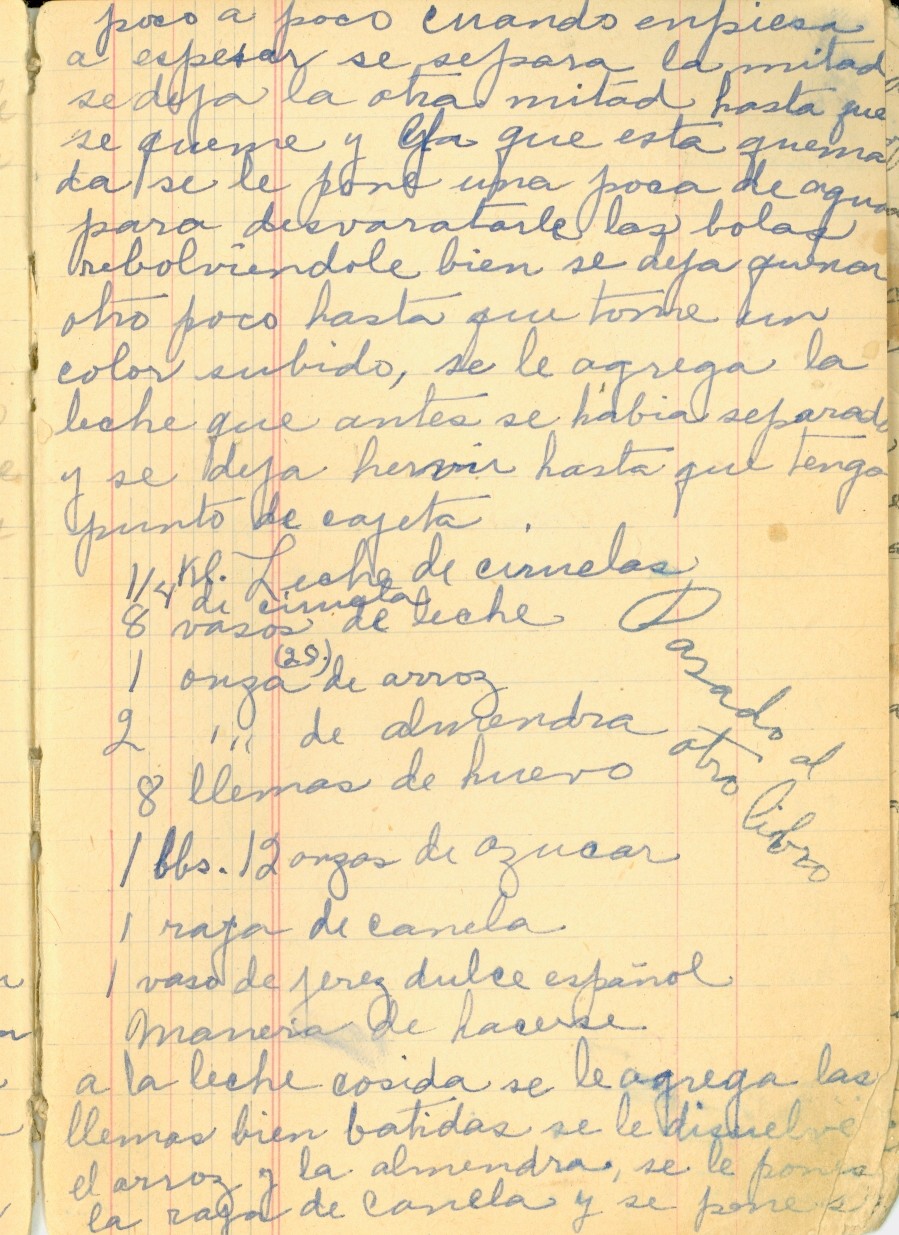 poco a poco cuando enpiesa
a espesar se separa la mitad
se deja la otra mitad hasta que
se queme y ya que esta quema
da se le pone una poca de agua
para desvaratarle las bolas
rebolviendole bien se deja quemar
otro poco hasta que tome un
color subido, se le agrega la
leche que antes se habia separado
y se deja hervir hasta que tenga
punto de cajeta.
Leche de ciruelas
1/4 Kl. de ciruela
8 vasos de leche
1 onza (28.) de arroz
2 ,,, de almendra
8 llemas de huevo
1 lbs. 12 onzas de azucar
1 raja de canela
1 vaso de jerez dulce español
Pasado al
otro libro
Manera de hacerse
a la leche cosida se le agrega las
llemas bien batidas se le disuelve
el arroz y la almendra, se le pone
la raja de canela y se pone